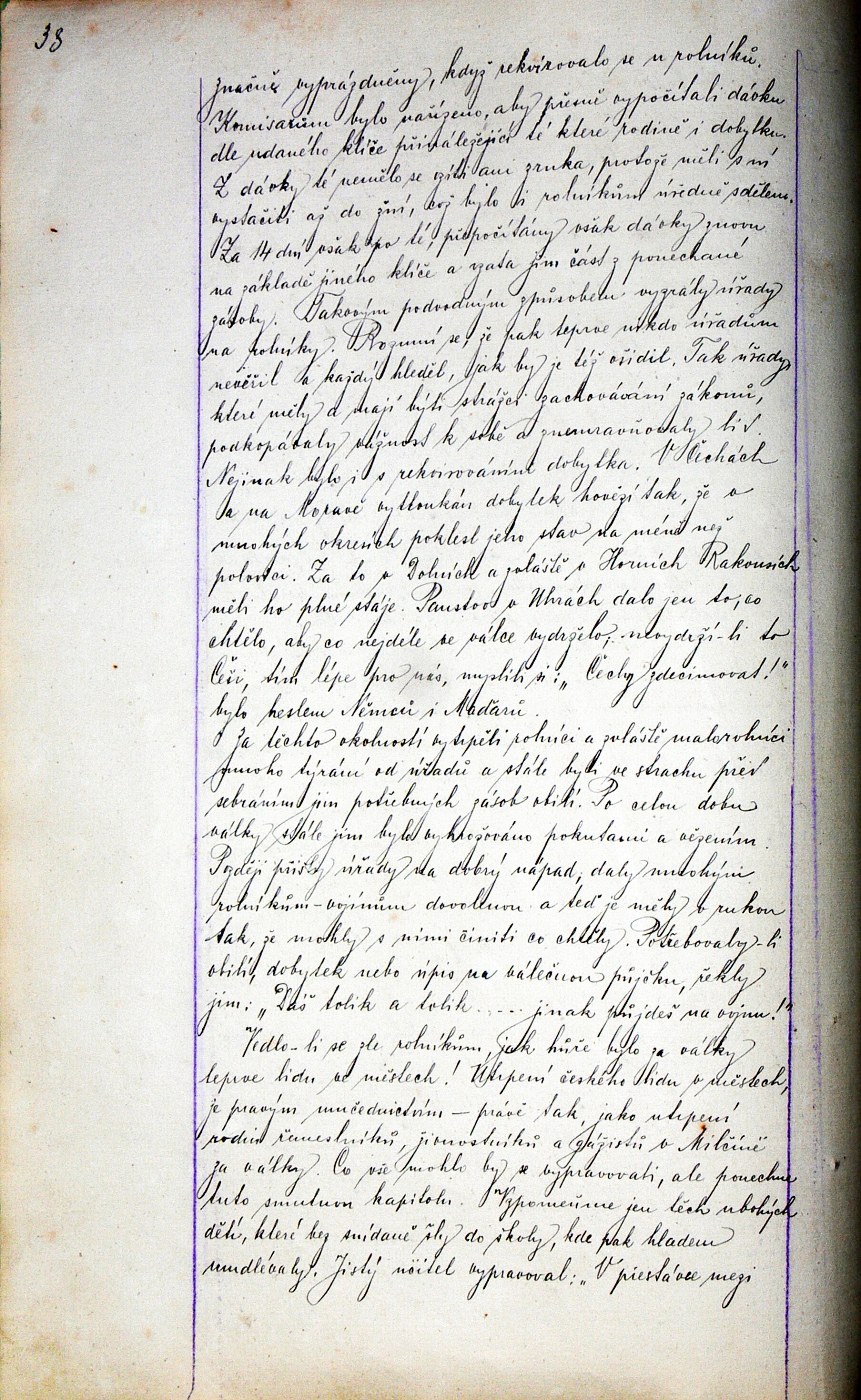 38
značně vyprázdněny, když rekvirovalo se u rolníků.
Komisařům bylo nařízeno, aby přesně vypočítali dávku
dle udaného klíče přináležející té které rodině i dobytku.
Z dávky té nemělo se vzíti ani zrnka, protože měli s ní
vystačiti až do žní, což bylo i rolníkům úředně sděleno.
Za 14 dní však po té, přepočítány však dávky znovu
na základě jiného klíče a vzata jim část z ponechané
zásoby. Takovým podvodným způsobem vyzrály úřady
na rolníky. Rozumí se, že pak teprve nikdo úřadům
nevěřil a každý hleděl, jak by je též ošidil. Tak úřady,
které měly a mají býti strážci zachovávání zákonů,
podkopávaly vážnost k sobě a znemravňovaly lid.
Nejinak bylo i s rekvirováním dobytka. V Čechách
a na Moravě vytloukán dobytek hovězí tak, že v
mnohých okresích poklesl jeho stav na méně než
polovici. Za to v Dolních a zvláště v Horních Rakousích
měli ho plné stáje. Panstvo v Uhrách dalo jen to, co
chtělo, aby co nejdéle ve válce vydrželo; nevydrží-li to
Češi, tím lépe pro nás, myslili si: „Čechy zdecimovat!"
bylo heslem Němců i Maďarů.
Za těchto okolností vytrpěli rolníci a zvláště malorolníci
mnoho týrání od úřadů a stále byli ve strachu před
sebráním jim potřebných zásob obilí. Po celou dobu
války stále jim bylo vyhrožováno pokutami a vězením.
Později přišly úřady na dobrý nápad; daly mnohým
rolníkům-vojínům dovolenou a teď je měly v rukou
tak, že mohly s nimi činiti co chtěly. Potřebovaly-li
obilí, dobytek nebo úpis na válečnou půjčku, řekly
jim: „Dáš tolik a tolik ..... jinak půjdeš na vojnu!"
Vedlo-li se zle rolníkům, jak hůře bylo za války
teprve lidu ve městech! Utrpení českého lidu v městech,
je pravým mučednictvím — právě tak, jako utrpení
rodin řemeslníků, živnostníků a gážistů v Milčíně
za války. Co vše mohlo by se vypravovati, ale ponechme
tuto smutnou kapitolu. Vzpomeňme jen těch ubohých
dětí, které bez snídaně šly do školy, kde pak hladem
umdlévaly. Jistý učitel vypravoval: „V přestávce mezi